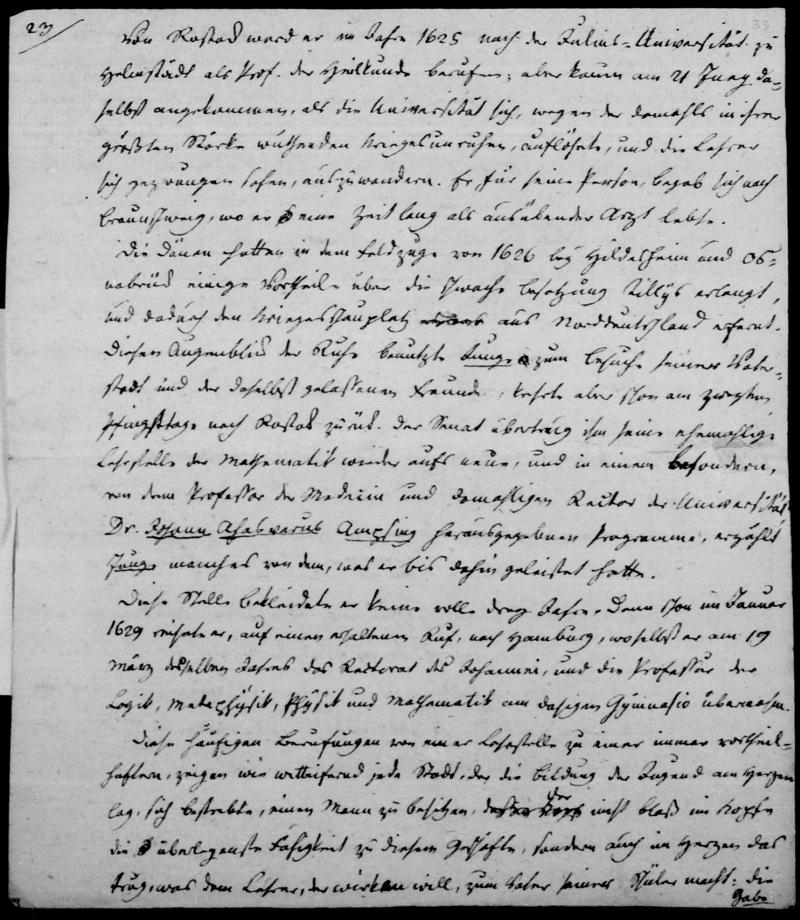 23/
Von Rostock ward er im Jahre 1625 nach der Julius-Universität zu
Helmstädt als Prof. der Heilkunde berufen; aber kaum am 21 Juny da-
selbst angekommen, als die Universität sich, wegen der damahls in ihrer
größten Stärke wüthenden Kriegesunruhen, auflösete, und die Lehrer
sich gezwungen sahen, auszuwandern. Er, für seine Person, begab sich nach
Braunschweig, wo er eine Zeit lang als ausübender Arzt lebte.
Die Dänen hatten in dem Feldzuge von 1626 bey Hildesheim und Os-
nabrück einige Vortheile über die schwache Besatzung Tillys erlangt,
und dadurch den Kriegesschauplatz aus Norddeutschland entfernt.
Diesen Augenblick der Ruhe benutzte Junge zum Besuche seiner Vater-
stadt und der daselbst gelassenen Freunde, kehrte aber schon am zweyten
Pfingsttage nach Rostok zurück. Der Senat übertrug ihm seine ehemahlige
Lehrstelle der Mathematik wieder aufs neue, und in einem besondern,
von dem Professor der Medicin und damahligen Rector der Universität
Dr. Johann Ahasverus Ampsing herausgegebenen Programme, erzählt
Junge manches von dem, was er bis dahin geleistet hatte.
Diese Stelle bekleidete er keine volle drey Jahre. Denn schon im Januar
1629 reisete er, auf einen erhaltenen Ruf, nach Hamburg, woselbst er am 19
März desselben Jahres das Rectorat des Johannei, und die Professur der
Logik, Metaphysik, Physik und Mathematik am dasigen Gymnasio übernahm.
Diese häufigen Berufungen von einer Lehrstelle zu einer immer vortheil-
haftern, zeigen wie wetteifernd jede Stadt, der die Bildung der Jugend am Herzen
lag, sich bestrebte, einen Mann zu besitzen, der nicht bloß im Kopfe
die überlegenste Fähigkeit zu diesem Geschäfte, sondern auch im Herzen das
trug, was den Lehrer, der wirken will, zum Vater seiner Schüler macht: die
Gabe